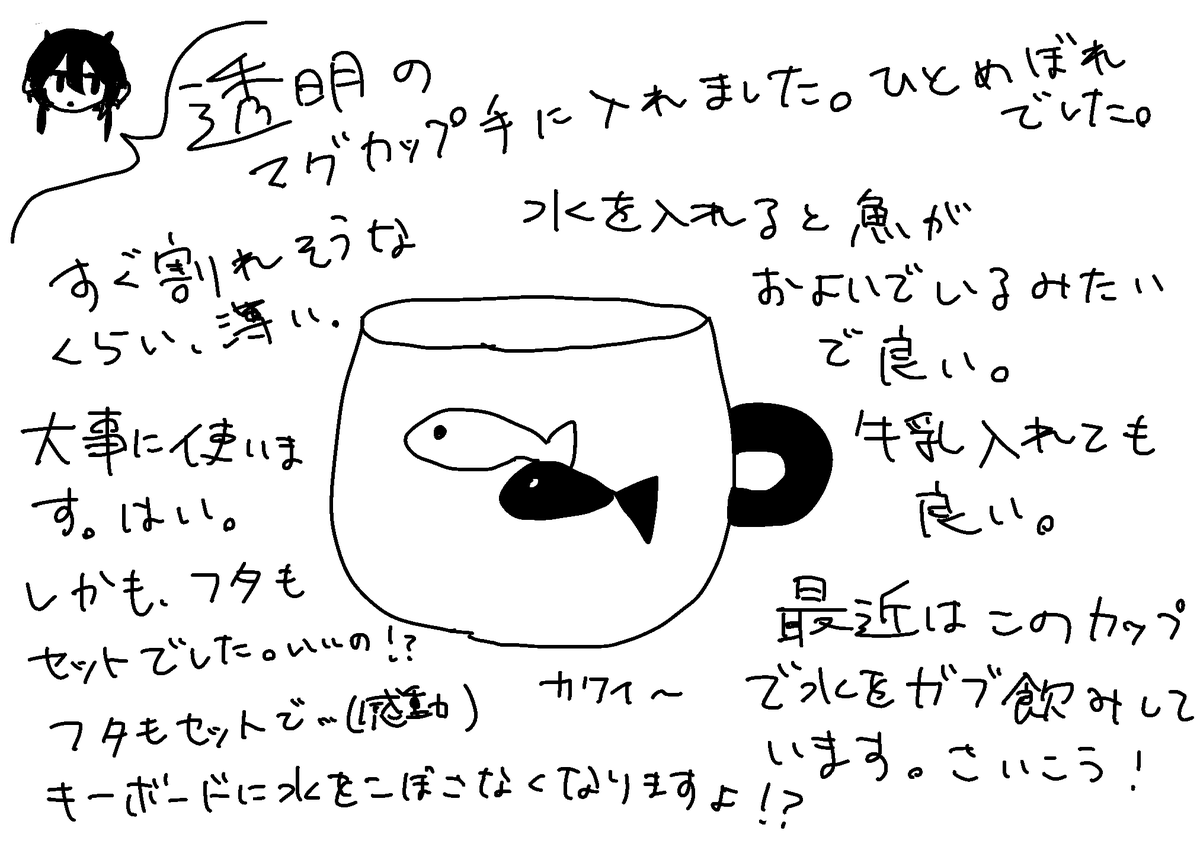 透明の
マグカップ手に入れました。ひとめぼれ
でした。
水を入れると魚が
およいでいるみたい
で良い。
牛乳入れても
良い。
すぐ割れそうな
くらい、薄い.
大事に使いま
す。はい。
しかも、フタも
セットでした。いいの!?
フタもセットで…(感動)
キーボードに水をこぼさなくなりますよ!?
カワイ〜
最近はこのカップ
で水をガブ飲みして
います。さいこう!